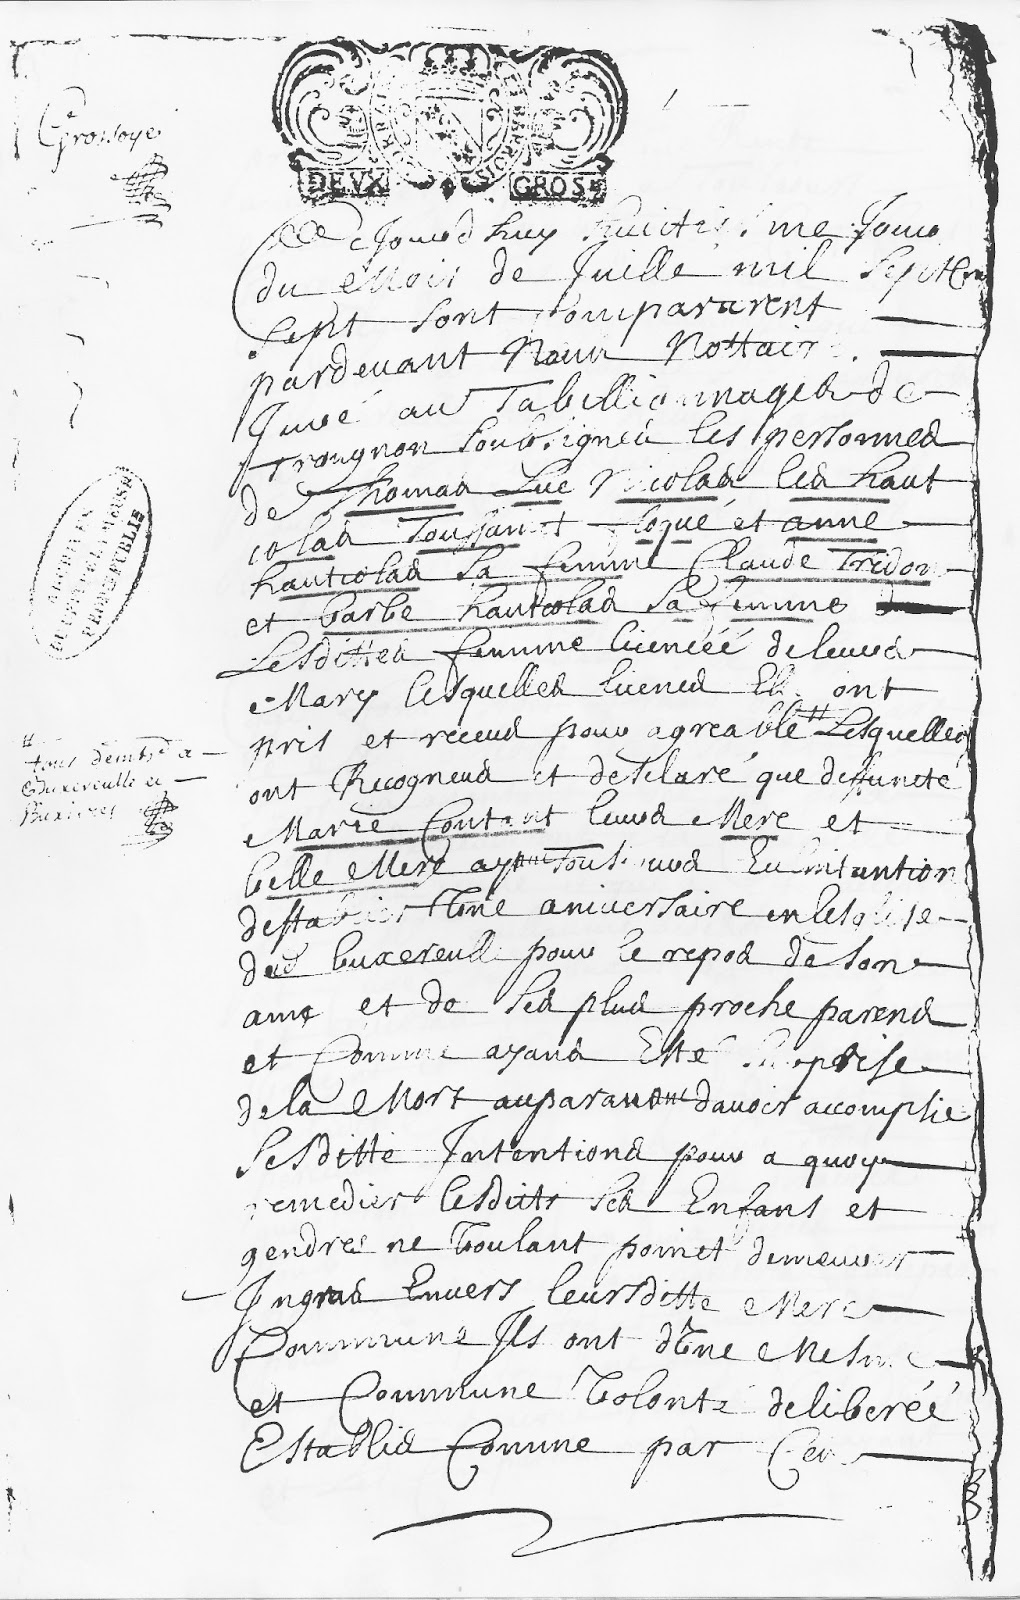 Grossoyé
DEVX GROS
Ce Jourdhuy huictiesme Jour
du Mois de Juille mil Sept Cen
Sept sont Comparurent
pardevant Nous Nottaire
Juré au Tabellionnage de
Trougnon Soubsignéd les personned
de Thomad Luc Nicolad led haut
colad Toussainct et anne
hautcolad Sa femme Claude Tridon
et barbe hautcolad Sa femme
Lesditted femme licenciéé de leurd
Mary lesquelled licenced Elle ont
pris et receud pour agreable # Lesquelled
ont Recogneud et desclaré que deffuncte
Marie Contant leurd Mere et
belle Mere ayant Tousjourd Eu intantion
destablier Une aniversaire en lesglise
dud buxereulle pour le repod de son
ame et de Sed plud proche parend
et Comme ayand Esté Surprise
de la Mort auparavant davoir accomplie
Sesditte Intentiond pour a quoy
remedier lesdits Sed Enfans et
gendres ne Voulant poinct demeurer
Ingrad Envers leursditte Mere
Commune Ils ont dUne Mesme
et Commune Volonté deliberéé
Establid Comme par Ces
#
tous demts a
Buxereulle et
Buxieres
ARCHIVES
DU DEPT DE LA MEUSE
REPRO. PUBLIE